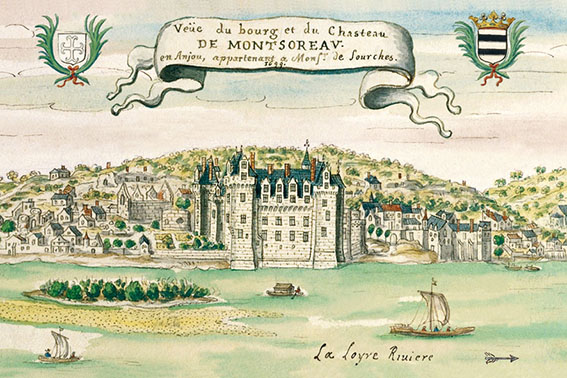 Veüe du bourg et du Chasteau
DE MONTSOREAV.
en Anjou, appartenant a Monsr. de Sourches.
1699.
La Loyre Riuiere